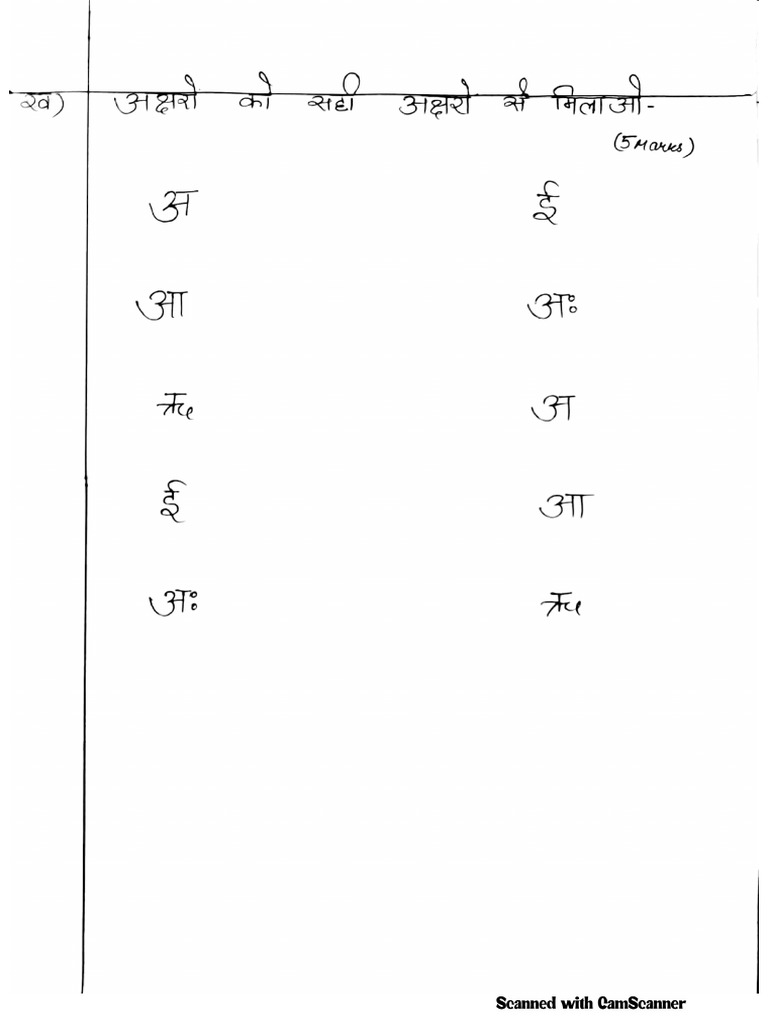 ख) अक्षरो को सही अक्षरो से मिलाओ-
(5 Marks)
अ ई
आ अः
ऋ अ
ई आ
अः ऋ
Scanned with CamScanner